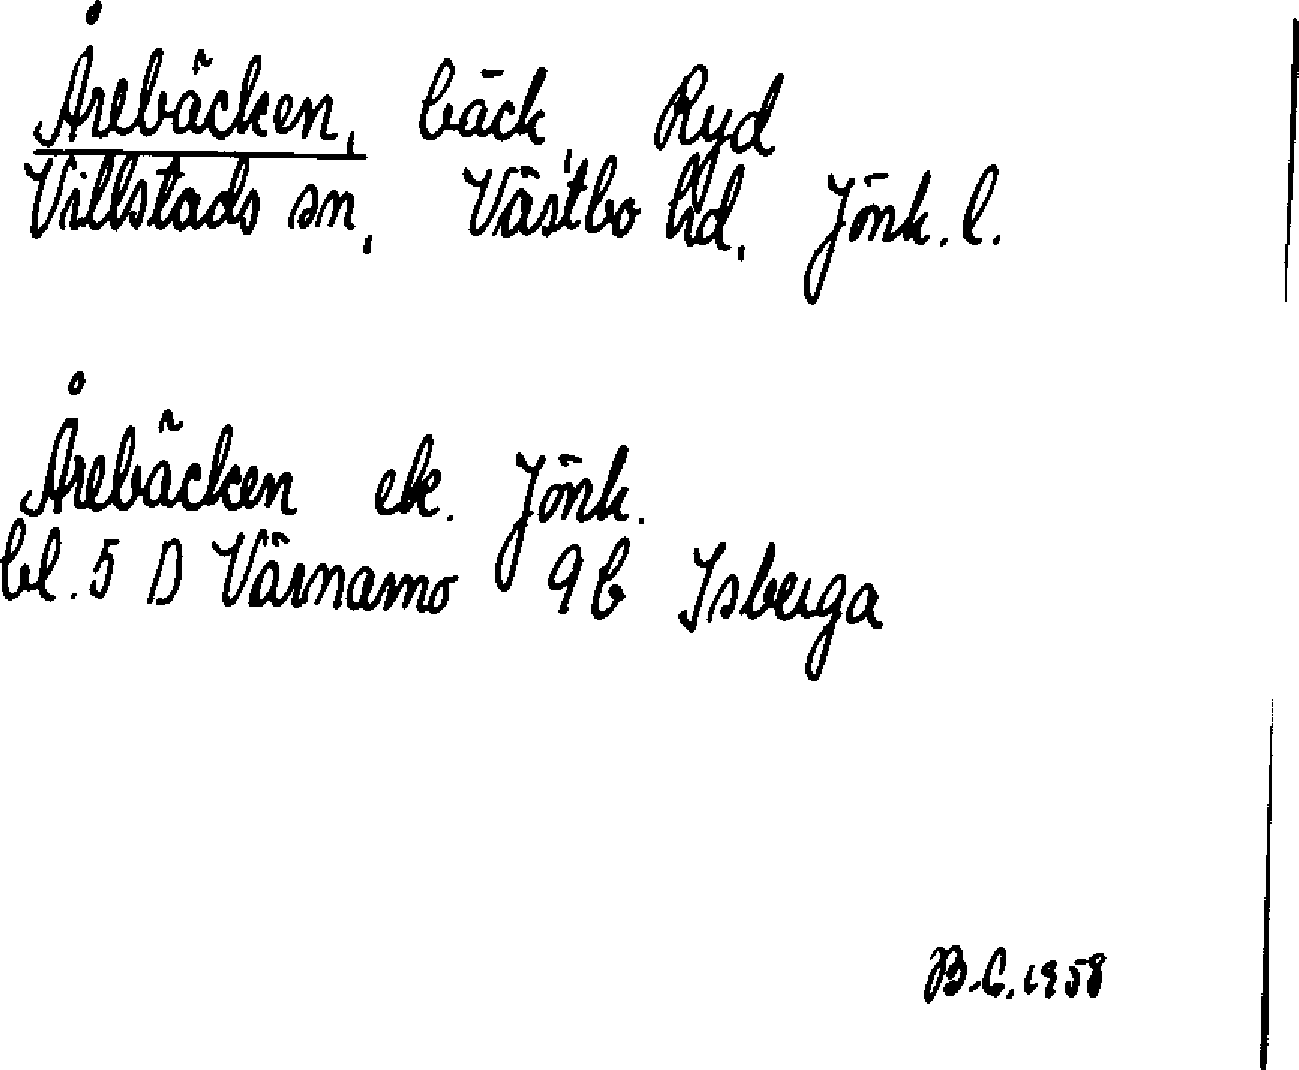 Årebäcken, bäck, Ryd
Villstads sn, Västbo hd, Jönk. l.
Årebäcken ek. Jönk.
bl. 5 D Värnamo 9 b Isberga
B.C. 1958